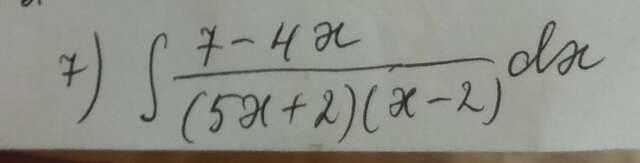 7) ∫ (7-4x)/((5x+2)(x-2)) dx